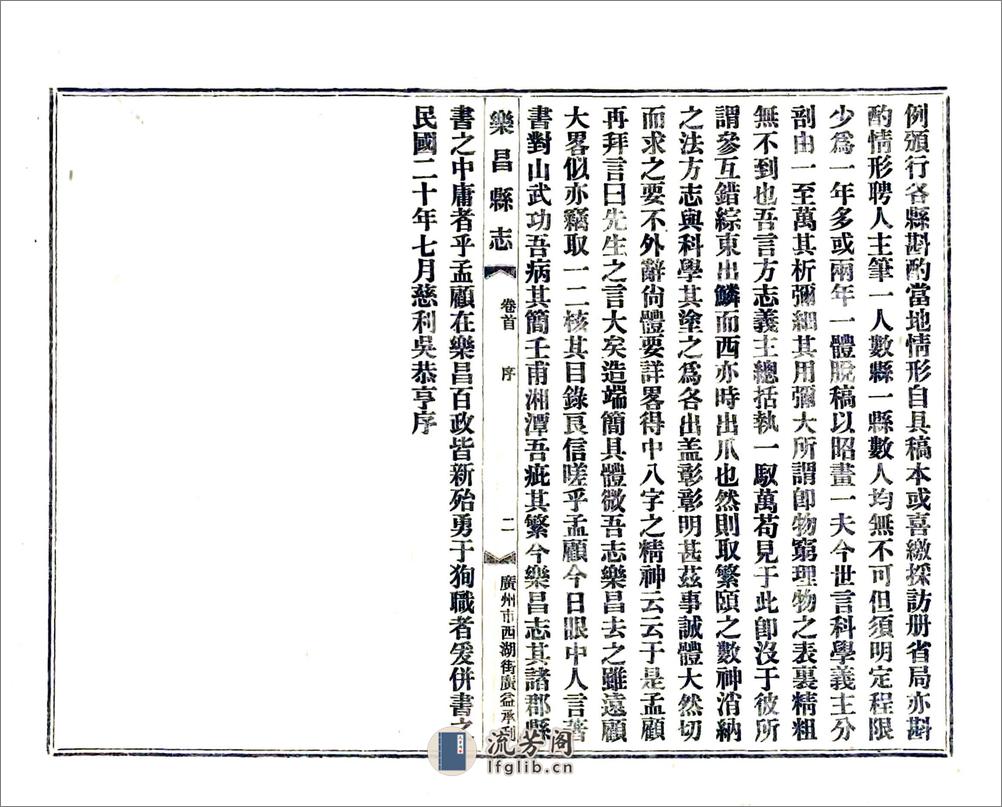 例頒行各縣斟酌當地情形自具稿本或喜繳採訪册省局亦斟
酌情形聘人主筆一人數縣一縣數人均無不可但須明定程限
少爲一年多或兩年一體脫稿以昭畫一夫今世言科學義主分
剖由一至萬其析彌細其用彌大所謂卽物窮理物之表裏精粗
無不到也吾言方志義主總括執一馭萬苟見于此卽沒于彼所
謂參互錯綜東出鱗而西亦時出爪也然則取繁頤之數神消納
之法方志與科學其塗之爲各出盖彰彰明甚茲事誠體大然切
而求之要不外辭尙體要詳畧得中八字之精神云云于是孟顧
再拜言曰先生之言大矣造端簡具體微吾志樂昌去之雖遠顧
大畧似亦竊取一二核其目錄良信嗟乎孟顧今日眼中人言著
書對山武功吾病其簡壬甫湘潭吾疵其繁今樂昌志其諸郡縣
樂昌縣志 卷首 序 二 廣州市西湖街廣益承刊
書之中庸者乎孟顧在樂昌百政皆新殆勇于狥職者爰併書之
民國二十年七月慈利吳恭亨序
流芳阁
lfglib.cn